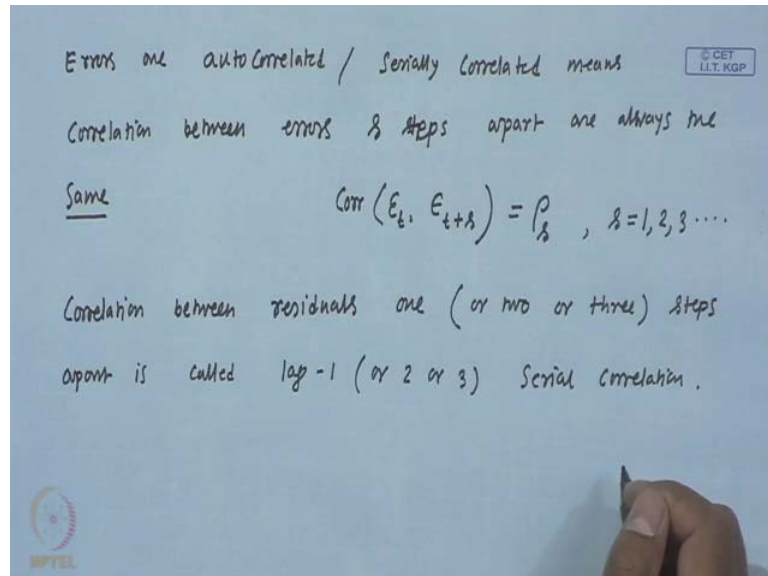 Errors are autocorrelated / Serially Correlated means
© CET
I.I.T. KGP
Correlation between errors s steps apart are always the
Same Corr (ϵ_t, ϵ_{t+s}) = ρ_s , s = 1, 2, 3 ....
Correlation between residuals one (or two or three) steps
apart is called lag -1 (or 2 or 3) Serial correlation.
NPTEL